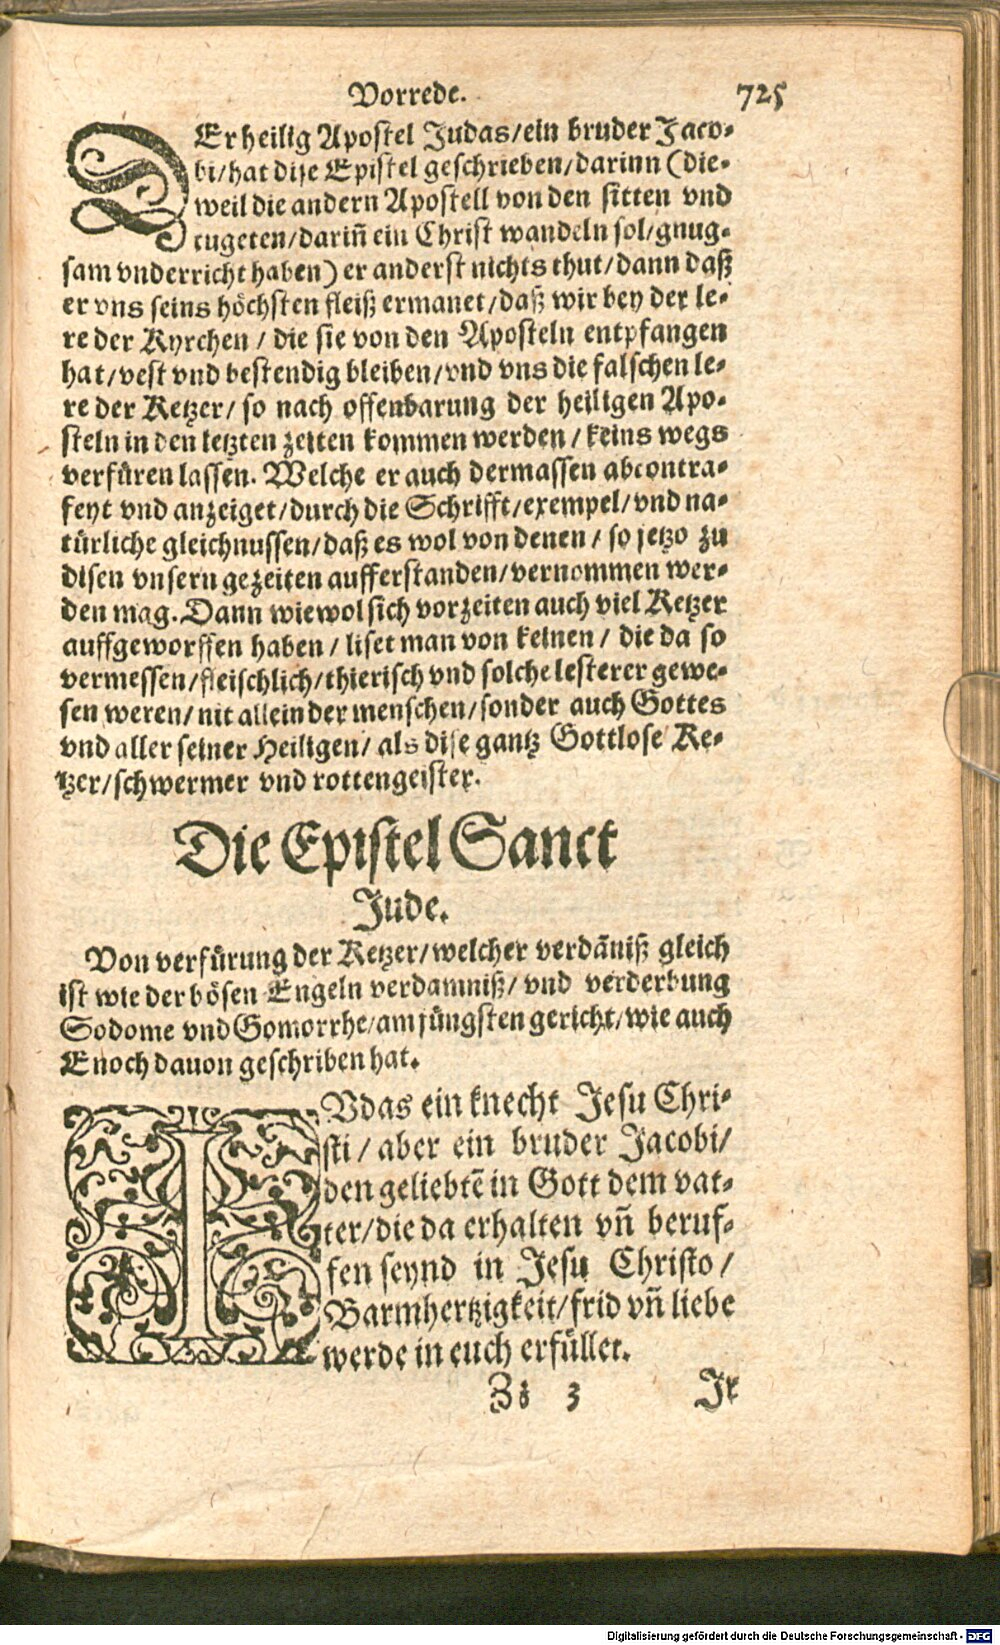 Vorrede. 725
DEr heilig Apostel Judas/ein bruder Jaco-
bi/hat dise Epistel geschrieben/darinn (die-
weil die andern Apostell von den sitten vnd
tugeten/dariñ ein Christ wandeln sol/gnug-
sam vnderricht haben) er anderst nichts thut/dann daß
er vns seins höchsten fleiß ermanet/daß wir bey der le-
re der Kyrchen / die sie von den Aposteln entpfangen
hat/vest vnd bestendig bleiben/vnd vns die falschen le-
re der Ketzer/ so nach offenbarung der heiligen Apo-
steln in den letzten zeiten kommen werden / keins wegs
verfüren lassen. Welche er auch dermassen abcontra-
feyt vnd anzeiget/durch die Schrifft/exempel/vnd na-
türliche gleichnussen/daß es wol von denen / so jetzo zu
disen vnsern gezeiten aufferstanden/vernommen wer-
den mag. Dann wiewol sich vorzeiten auch viel Ketzer
auffgeworffen haben / liset man von keinen / die da so
vermessen/fleischlich/thierisch vnd solche lesterer gewe-
sen weren/ nit allein der menschen/sonder auch Gottes
vnd aller seiner Heiligen/ als dise gantz Gottlose Ke-
tzer/schwermer vnd rottengeister.
Die Epistel Sanct
Jude.
Von verfürung der Ketzer/welcher verdãniß gleich
ist wie der bösen Engeln verdamniß/ vnd verderbung
Sodome vnd Gomorrhe/am jüngsten gericht/wie auch
Enoch dauon geschriben hat.
IVdas ein knecht Jesu Chri-
sti / aber ein bruder Jacobi/
den geliebtẽ in Gott dem vat-
ter/die da erhalten vñ beruf-
fen seynd in Jesu Christo /
Barmhertzigkeit/frid vñ liebe
werde in euch erfüllet.
Zz 3 Ir
Digitalisierung gefördert durch die Deutsche Forschungsgemeinschaft - DFG